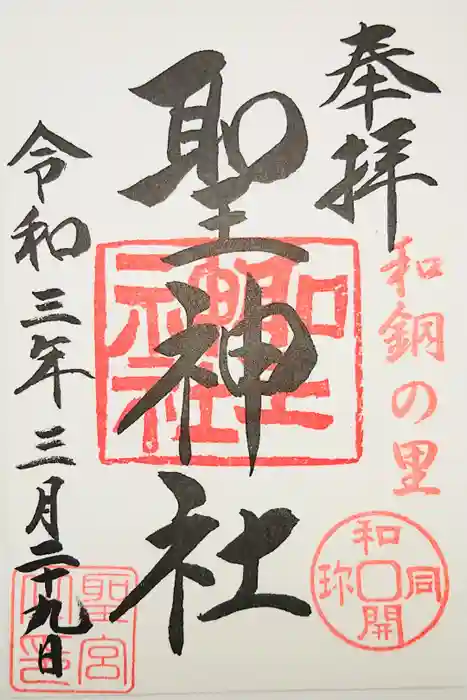 奉拝
和銅の里
和同開珎
聖神社
聖神社
令和三年三月二十九日
聖宮